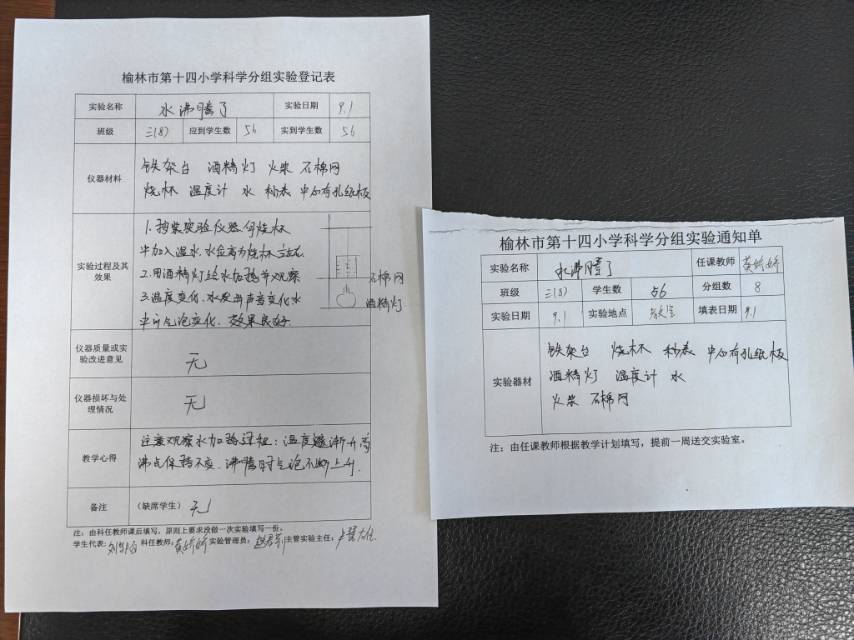 榆林市第十四小学科学分组实验登记表
实验名称 水沸腾了 实验日期 9.1
班级 三(8) 应到学生数 56 实到学生数 56
仪器材料
铁架台 酒精灯 火柴 石棉网
烧杯 温度计 水 秒表 中心有孔纸板
实验过程及其效果
1.按装实验仪器
中加入温水,水位高为烧杯
2.用酒精灯给水加热并观察
3.温度变化、水发出声音变化水
中气泡变化、效果良好
石棉网
酒精灯
仪器质量或实验改进意见 无
仪器损坏与处理情况 无
教学心得
注意观察水加热过程:温度逐渐升高
沸点保持不变、沸腾时气泡不断上升.
备注 (缺席学生) 无
注:由科任教师课后填写,原则上要求没做一次实验填写一份。
学生代表: 科任教师: 黄娇娇 实验管理员: 主管实验主任:
榆林市第十四小学科学分组实验通知单
实验名称 水沸腾了 任课教师 黄娇娇
班级 三(8) 学生数 56 分组数 8
实验日期 9.1 实验地点 教室 填表日期 9.1
实验器材
铁架台 烧杯 秒表 中心有孔纸板
酒精灯 温度计 水
火柴 石棉网
注:由任课教师根据教学计划填写,提前一周送交实验室。